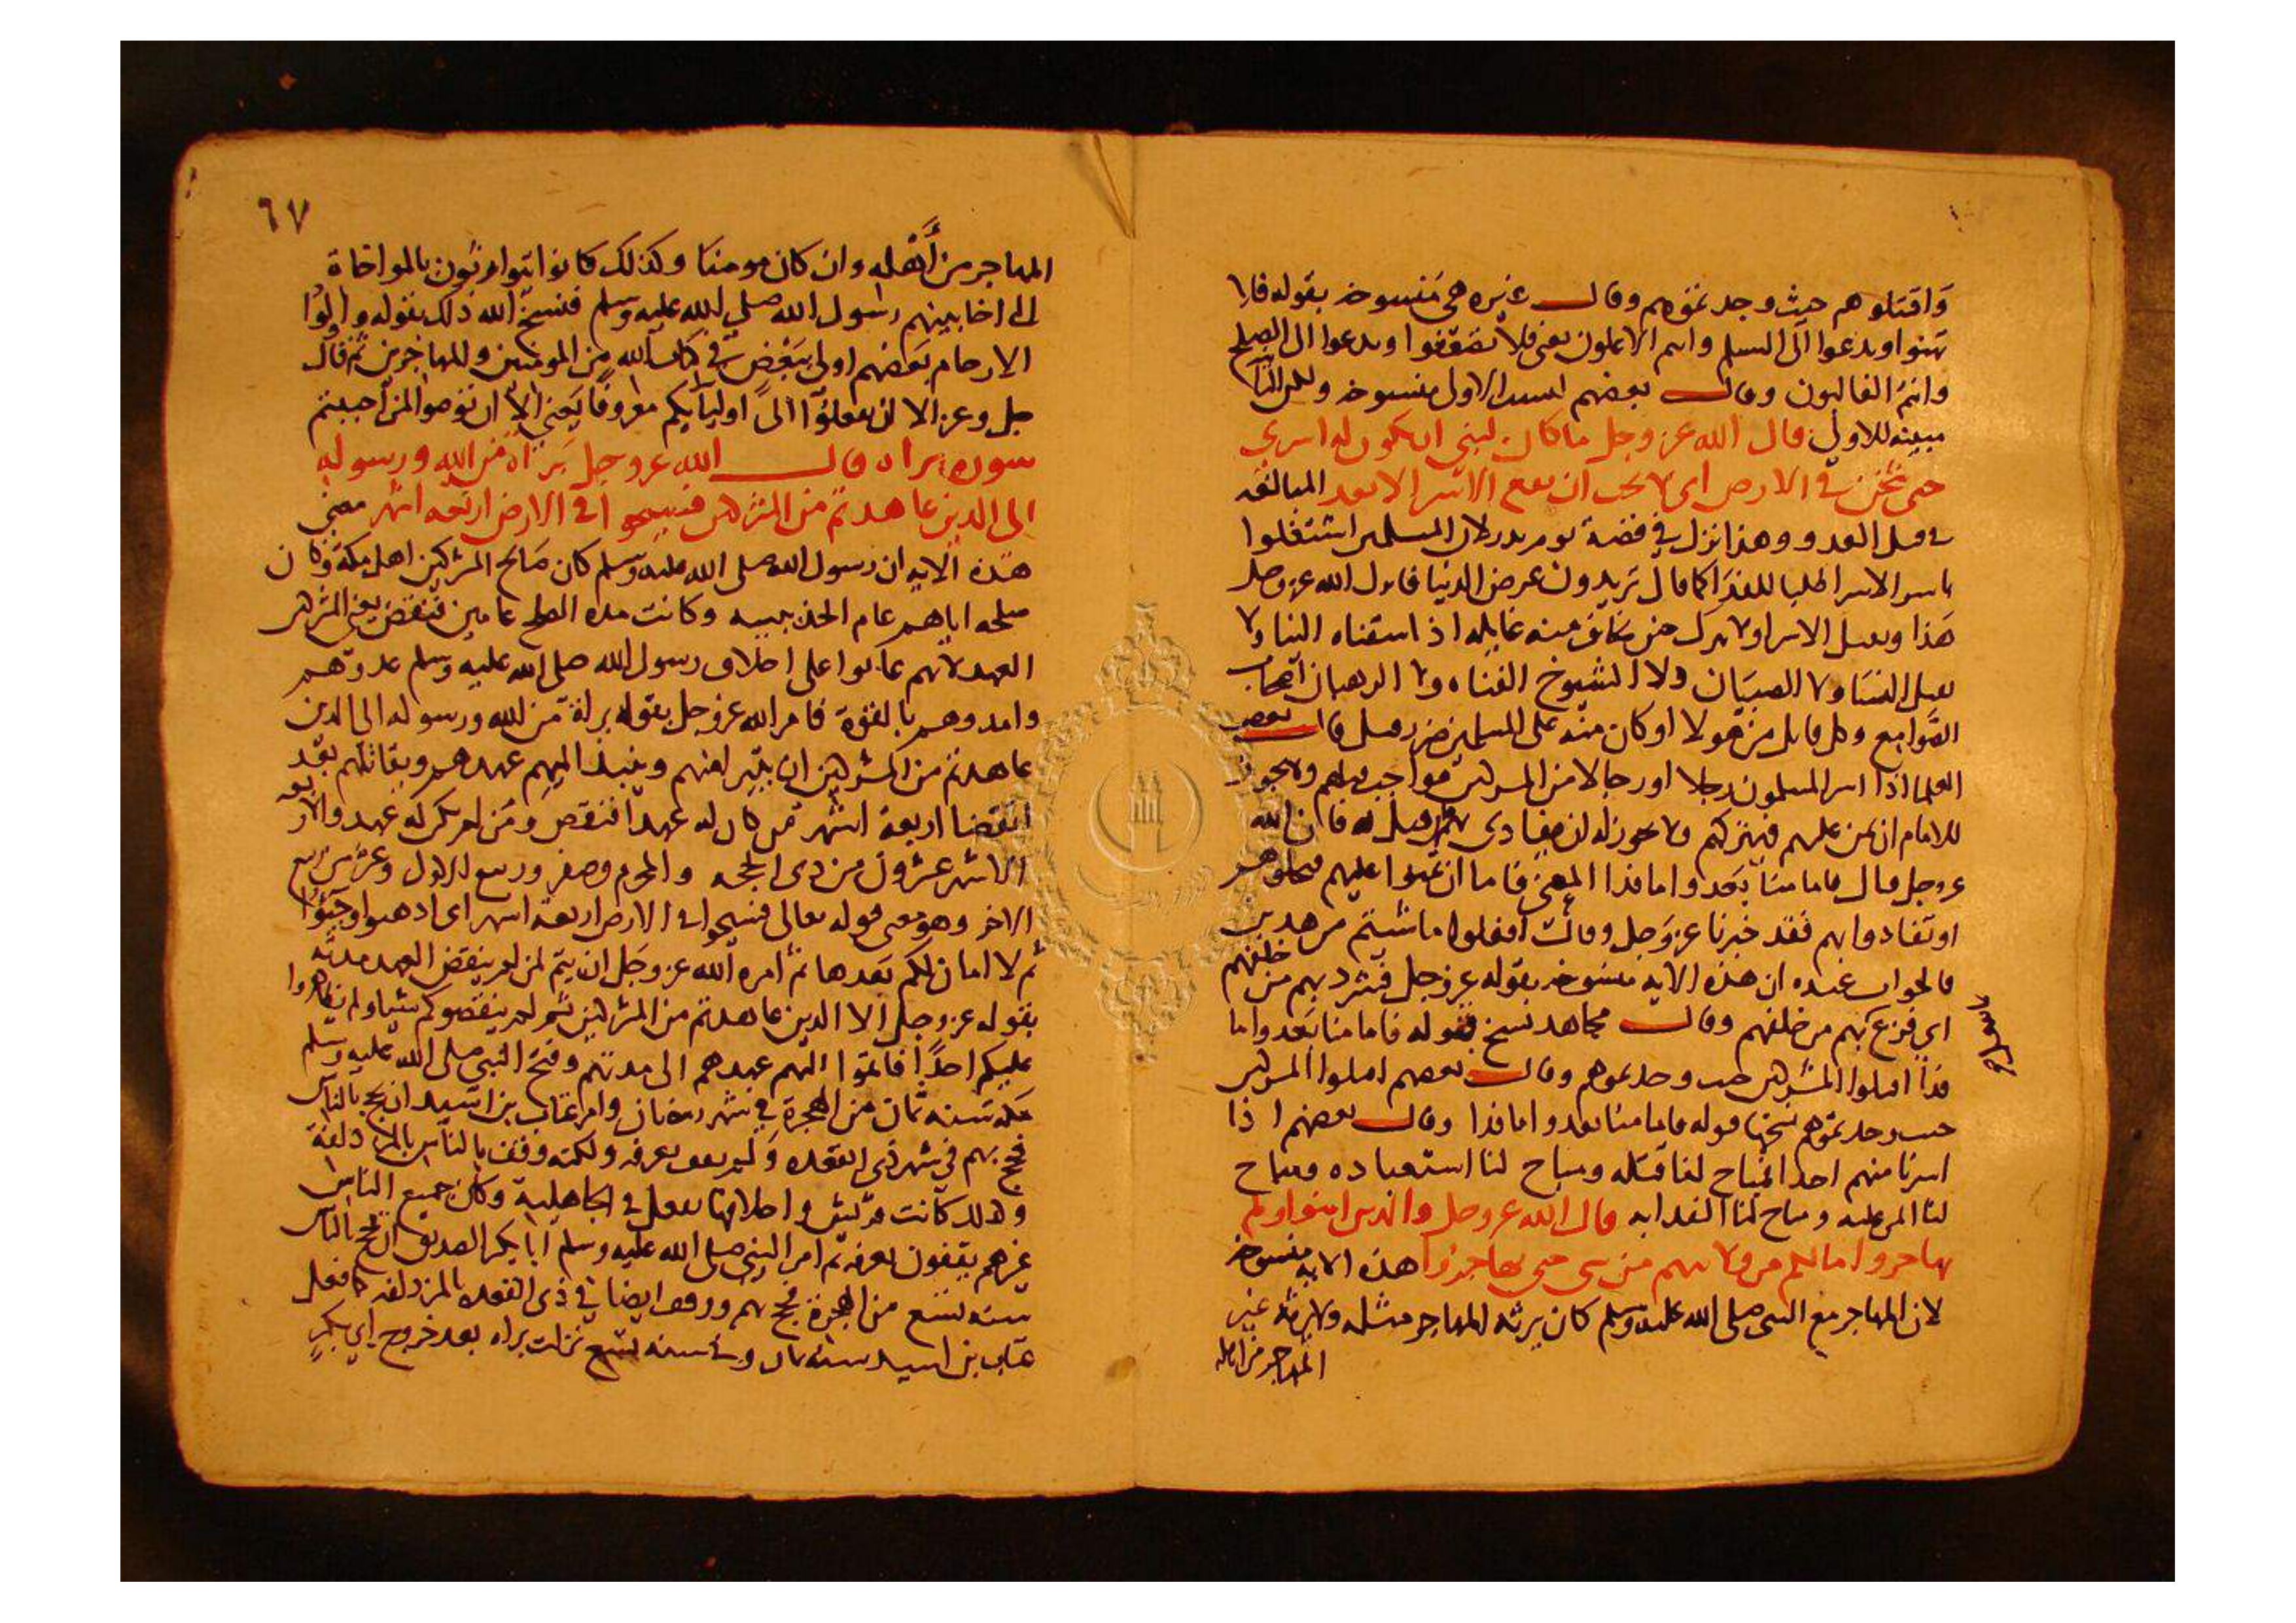 وَاقتلوهم حيث وجدتموهم وقال غيره هي منسوخه بقوله فلا
تهنوا وتدعوا الى السلم وانتم الاعلون يعني فلا تضعفوا وتدعوا الى الصلح
وانتم الغالبون وقال بعضهم ليست الاولى منسوخه ولكن الثانيه
مبينه للاولى قال الله عز وجل ما كان لنبي ان يكون له اسرى
حتى يثخن في الارض اي لا يجب ان يقع الاسر الا بعد المبالغه
في قتل العدو وهذا نزل في قصة يوم بدر لان المسلمين اشتغلوا
باسر الاسرا طلبا للفدا كما قال تريدون عرض الدنيا فانزل الله عز وجل
هذا ويقتل الاسرا ولا يترك من يخاف منه غايله اذ استثناه النبا ولا
يقتل النسا ولا الصبيان ولا الشيوخ الفناه ولا الرهبان اصحاب
الصوامع وكل قاتل من هولا او كان منه على المسلمين ضرر قتل قال بعض
العلما اذا اسر المسلمون رجلا او رجالا من المشركين فواجب قتلهم ولا يجوز
للامام ان يمن عليهم فيتركهم ولا يجوز له ان يفادى بهم قيل له فان الله
عز وجل قال فاما منا بعد واما فدا المعنى فاما ان تمنوا عليهم فتخلوهم
او تفادوا بهم فقد خيرنا عز وجل وقالت افعلوا ما شيتم من هذين
فالجواب عنده ان هذه الايه منسوخه بقوله عز وجل فشرد بهم من خلفهم
اي فزع بهم من خلفهم وقال مجاهد نسخ قوله فاما منا بعد واما
فدا اقتلوا المشركين حيث وجدتموهم وقال بعضهم اقتلوا المشركين
حيث وجدتموهم نسخها قوله فاما منا بعد واما فدا وقال بعضهم اذا
اسرنا منهم احدا فمباح لنا قتله ومباح لنا استعباده ومباح
لنا المن عليه ومباح لنا الفدا به قال الله عز وجل والذين امنوا ولم
يهاجروا ما لكم من ولايتهم من شي حتى يهاجروا هذه الايه منسوخه
لان المهاجر مع النبي صلى الله عليه وسلم كان يرثه المهاجر مثله ولا يرثه غير
المهاجر من اهله
٦٧
المهاجر من أهله وان كان مومنا وكذلك كانوا يتوارثون بالمواخاة
التي اخا بينهم رسول الله صلى الله عليه وسلم فنسخ الله ذلك بقوله واولوا
الارحام بعضهم اولى ببعض في كتاب الله من المومنين وللمهاجرين ثم قال
جل وعز الا ان تفعلوا الى اوليايكم معروفا يعني الا ان توصوا لمن احببتم
سورة براه قال الله عز وجل براة من الله ورسوله
الى الذين عاهدتم من المشركين فسيحوا في الارض اربعه اشهر معنى
هذه الايه ان رسول الله صلى الله عليه وسلم كان صالح المشركين اهل مكة وكان
صلحه اياهم عام الحديبيه وكانت مده الصلح عامين فنقض يعني المشركين
العهد لانهم عانوا على احلاف رسول الله صلى الله عليه وسلم عدوهم
وامدوهم بالقوة فامر الله عز وجل بقوله براة من الله ورسوله الى الذين
عاهدتم من المشركين ان يتبرا منهم وينبذ اليهم عهدهم ويقاتلهم بعد
انقضا اربعة اشهر فمن كان له عهدا فنقص ومن لم يكن له عهد والاربعه
الاشهر عشرون من ذي الحجه والمحرم وصفر وربيع الاول وعشر من ربيع
الاخر وهو معنى قوله تعالى فسيحوا في الارض اربعة اشهر اي اذهبوا وجيوا
ثم لا امان لكم بعدها ثم امره الله عز وجل ان يتم لمن لم ينقض العهد مدته
بقوله عز وجل الا الذين عاهدتم من المشركين ثم لم ينقصوكم شيا ولم يظاهروا
عليكم احدًا فاتموا اليهم عهدهم الى مدتهم وفتح النبي صلى الله عليه وسلم
مكه سنه ثمان من الهجرة في شهر رمضان وامر عتاب بن اسيد ان يحج بالناس
فحج بهم في شهر ذي القعده ولم يقف بعرفه ولكنه وقف بالناس بالمزدلفة
وكذلك كانت قريش واحلافها تفعل في الجاهلية وكان جميع الناس
غيرهم يقفون بعرفه ثم امر النبي صلى الله عليه وسلم ابا بكر الصديق ان يحج بالناس
سنه تسع من الهجرة فحج بهم ووقف ايضا في ذي القعده بالمزدلفه كما فعل
عتاب بن اسيد سنه ثمان وفي سنه تسع نزلت براه بعد خروج ابي بكر